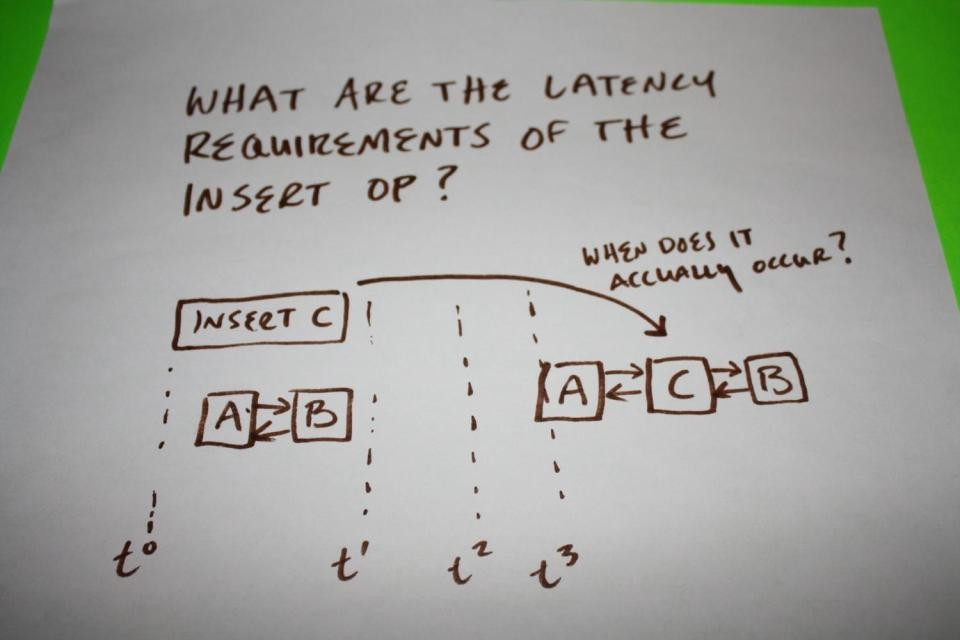 WHAT ARE THE LATENCY
REQUIREMENTS OF THE
INSERT OP?
WHEN DOES IT
ACCUALLY OCCUR?
INSERT C
A C B
A B
t⁰ t¹ t² t³